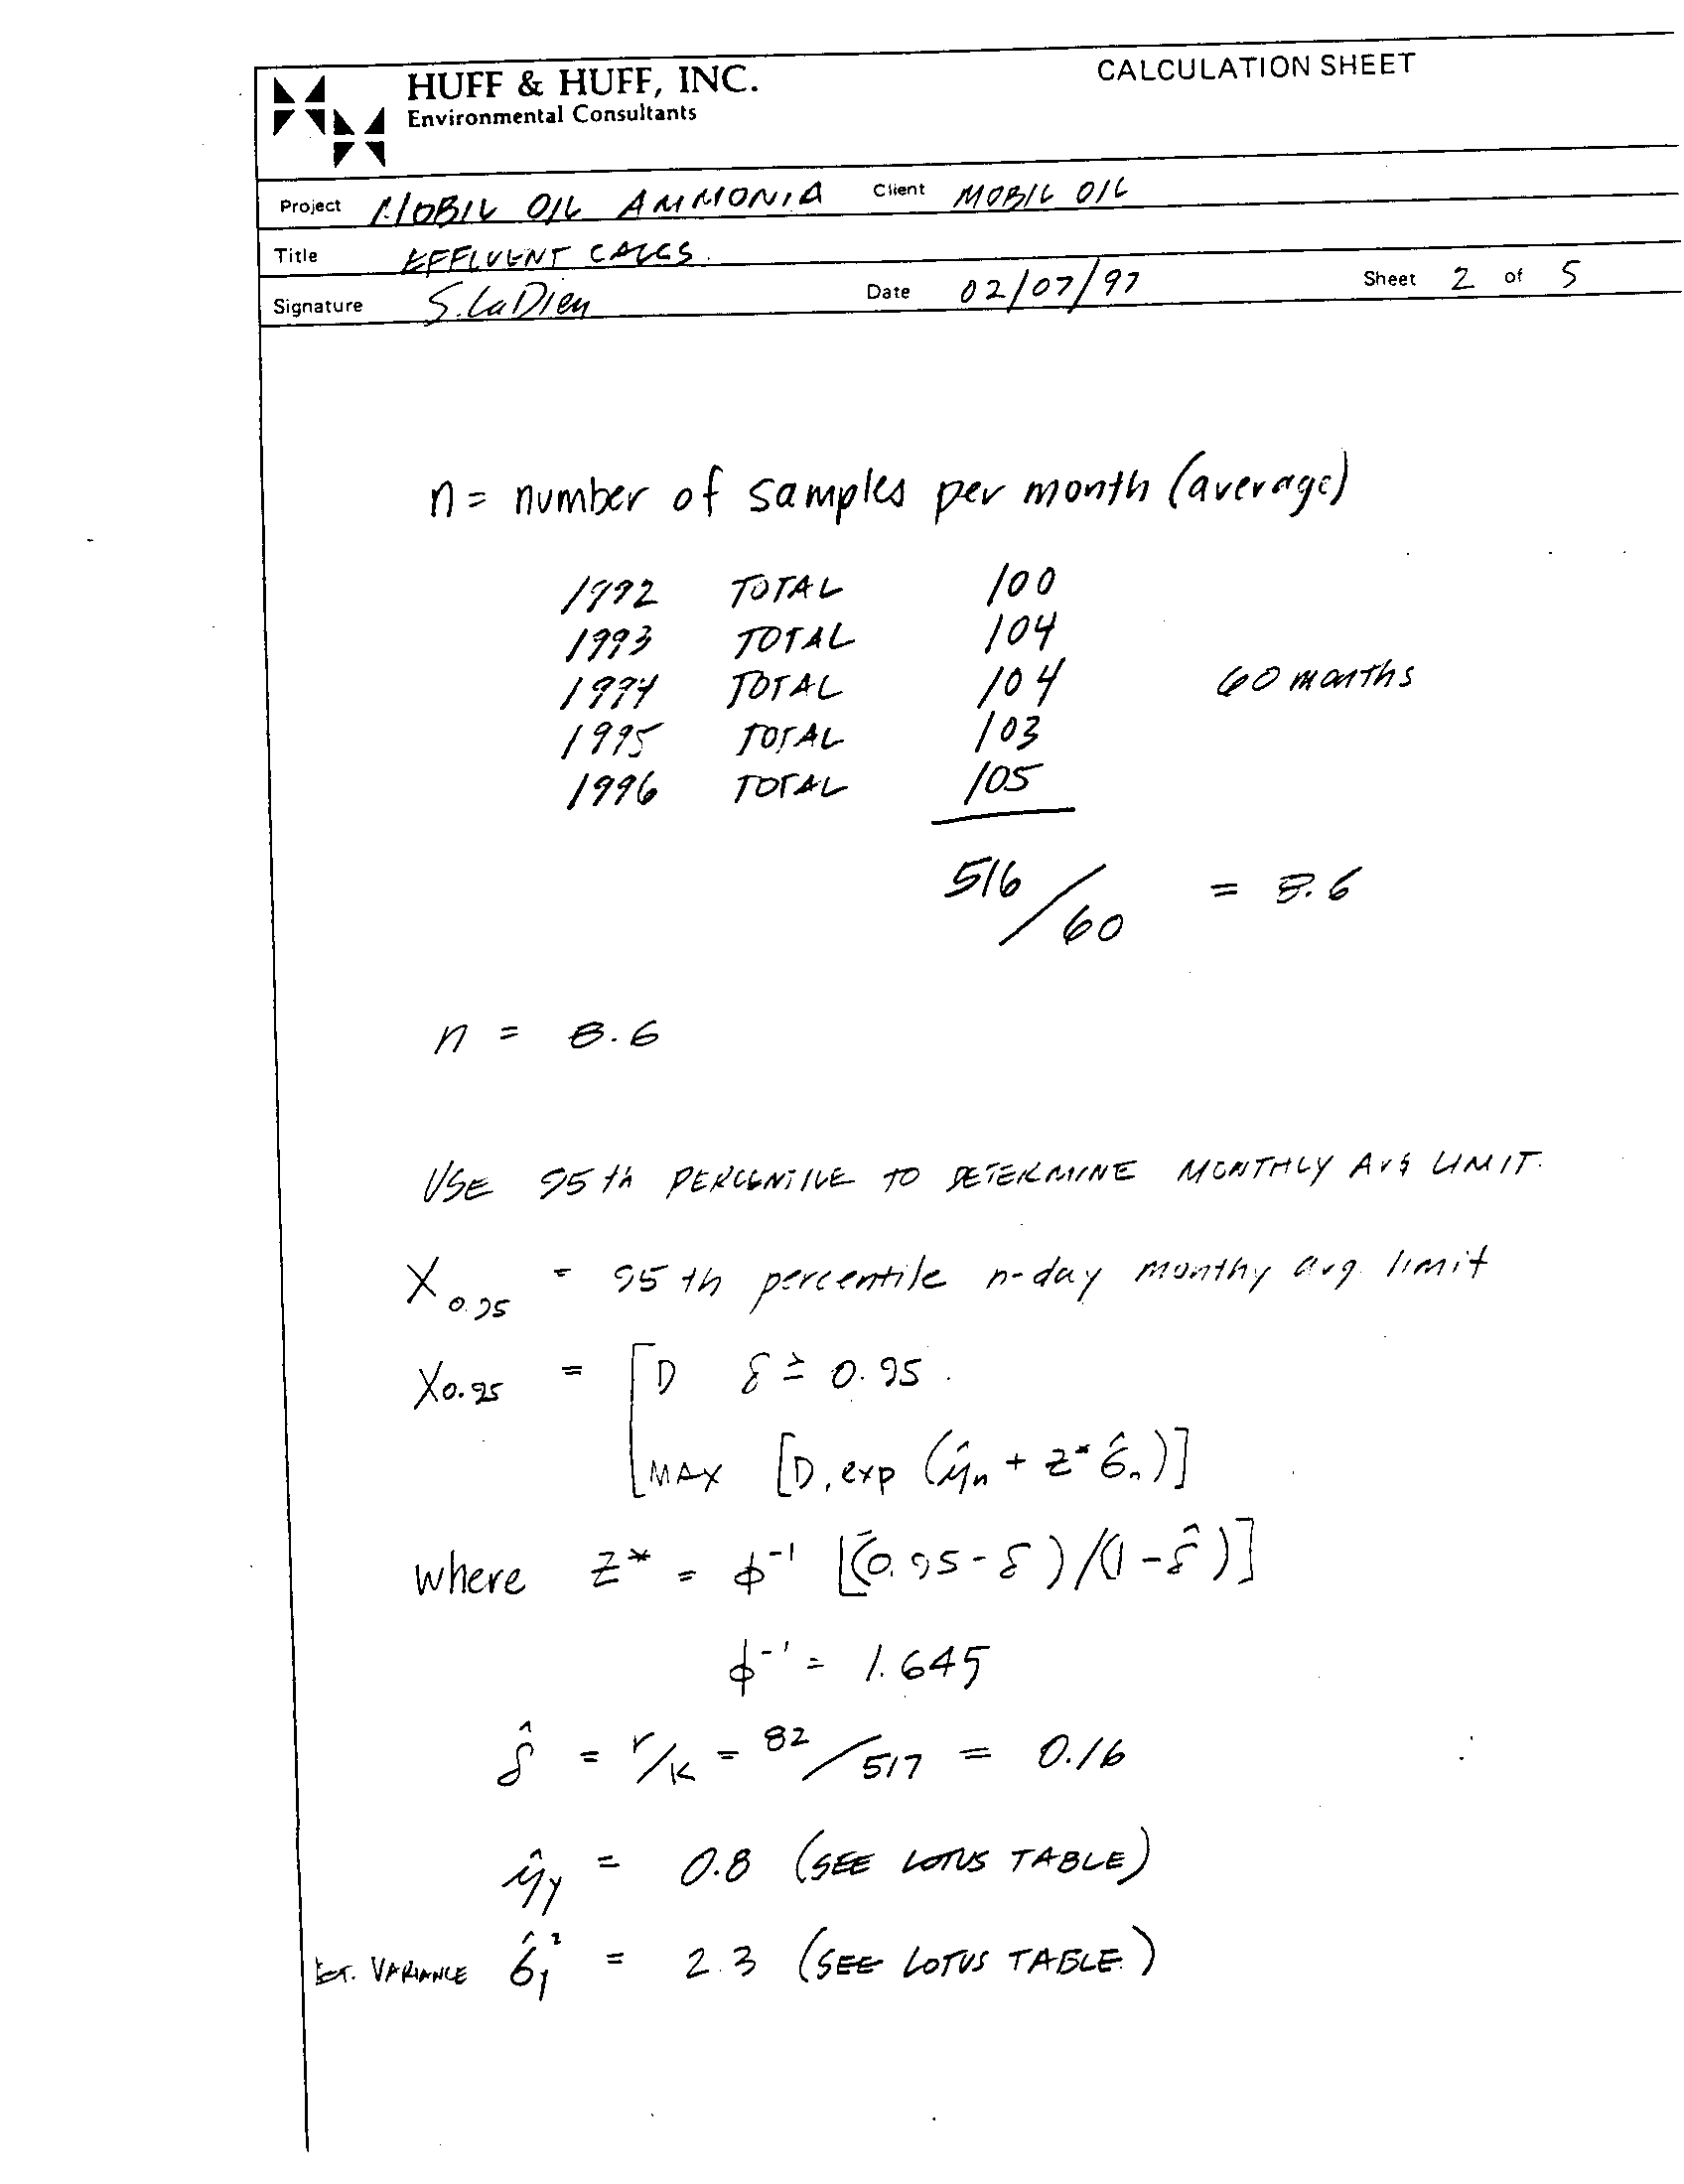 HUFF & HUFF, INC.
Environmental Consultants
CALCULATION SHEET
Project MOBIL OIL AMMONIA Client MOBIL OIL
Title EFFLUENT CALCS.
Signature S. LaDieu Date 02/07/97 Sheet 2 of 5
n = number of samples per month (average)
1992 TOTAL 100
1993 TOTAL 104
1994 TOTAL 104 60 months
1995 TOTAL 103
1996 TOTAL 105
516/60 = 8.6
n = 8.6
USE 95th PERCENTILE TO DETERMINE MONTHLY AVG LIMIT.
X0.95 = 95th percentile n-day monthy avg. limit
X0.95 = [D δ ≥ 0.95.
MAX [D, exp (μ̂n + z* σ̂n)]
where z* = ϕ⁻¹ [(0.95-δ̂)/(1-δ̂)]
ϕ⁻¹ = 1.645
δ̂ = r/K = 82/517 = 0.16
μ̂y = 0.8 (SEE LOTUS TABLE)
EST. VARIANCE σ̂y² = 2.3 (SEE LOTUS TABLE)